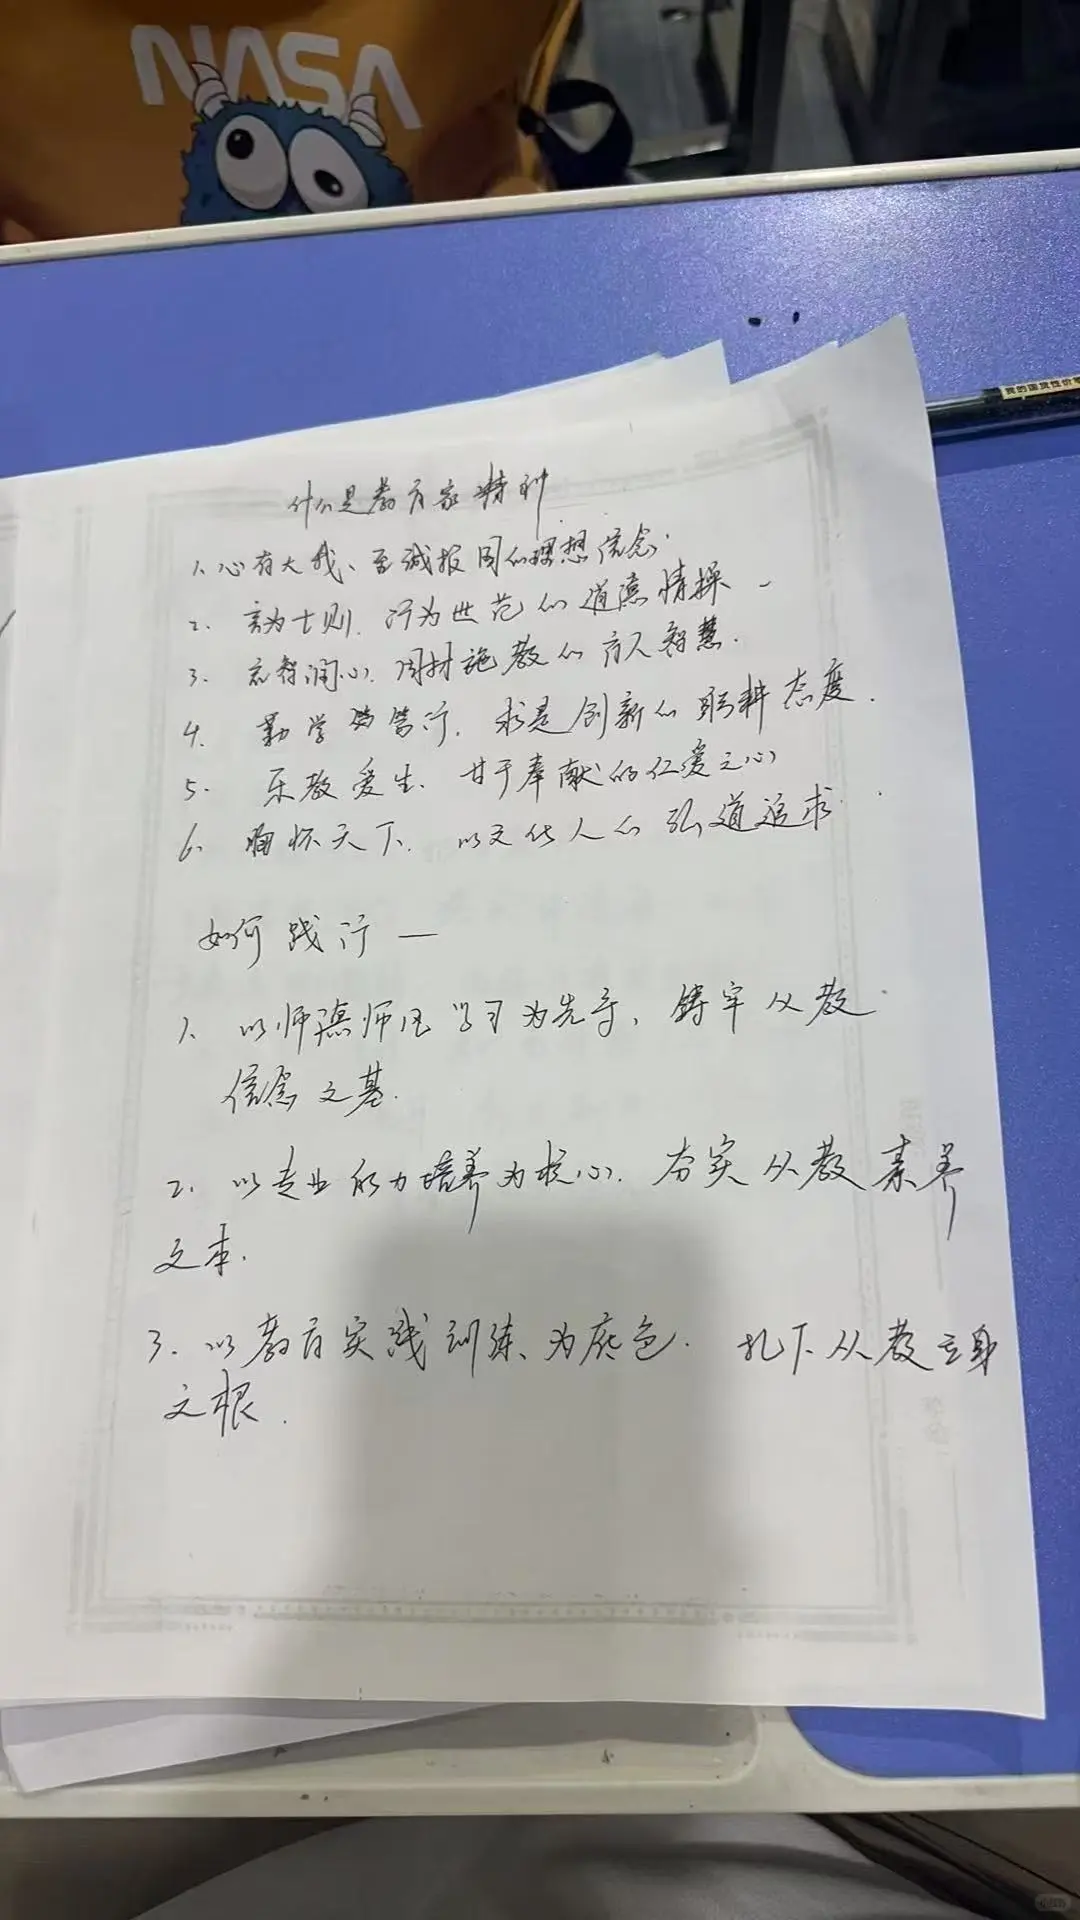 NASA
我的国货性价笔
什么是教育家精神
1、心有大我、至诚报国的理想信念.
2. 言为士则、行为世范的道德情操-
3. 启智润心、因材施教的育人智慧.
4. 勤学笃行、求是创新的躬耕态度.
5. 乐教爱生、甘于奉献的仁爱之心
6. 胸怀天下、以文化人的弘道追求.
如何践行—
1. 以师德师风学习为先导, 铸牢从教
信念之基.
2. 以专业能力培养为核心. 夯实从教素养
之本.
3. 以教育实践训练为底色. 扎下从教立身
之根.
小红书